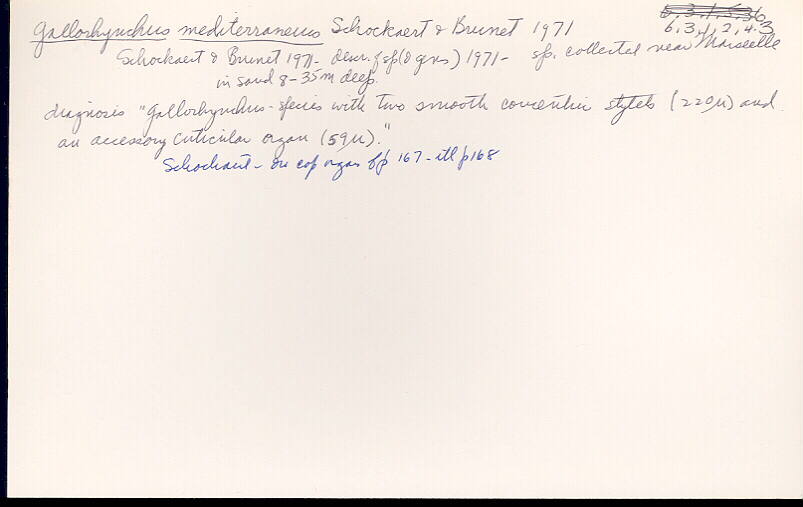 Gallorhynchus mediterraneus Schockaert & Brunet 1971
6, 3, 1, 2, 4.3
Schockaert & Brunet 1971- descr. of sp (& gens) 1971- sp. collected near Marseille
in sand 8-35m deep.
diagnosis "Gallorhynchus-species with two smooth concentric stylets (220µ) and
an accessory cuticular organ (59µ)."
Schockaert - on cop organ of p 167 - ill p168